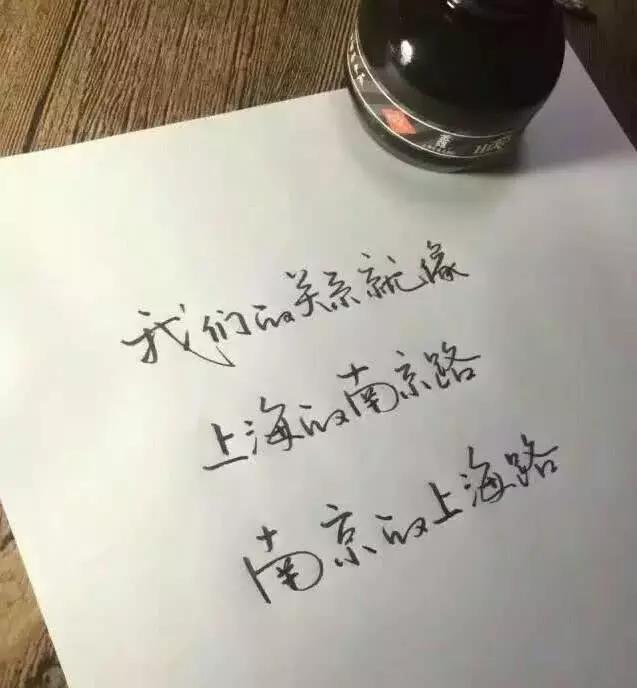 我们的关系就像
上海的南京路
南京的上海路